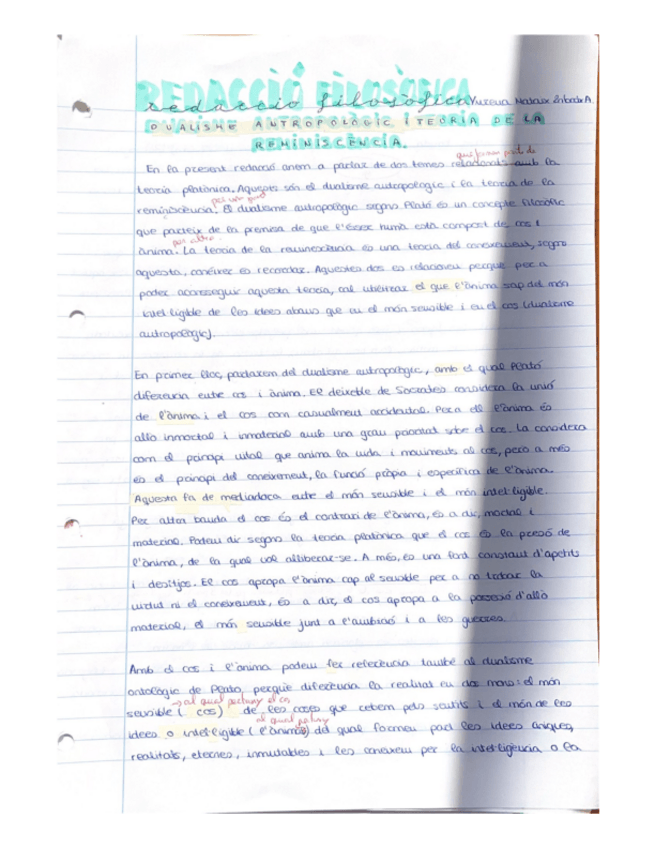 REDACCIÓ FILOSÒFICA
redacció filosòfica
DUALISME ANTROPOLÒGIC I TEORIA DE LA
REMINISCÈNCIA.
que formen part de
En la present redacció anem a parlar de dos temes relacionats amb la
teoria platònica. Aquests són el dualisme antropologic i la teoria de la
per un part
reminisciència. El dualisme antropologic segons Plató es un concepte filosòfic
que parteix de la premisa de que l'ésser humà està compost de cos i
per altre
ànima. La teoria de la reminiscència es una teoria del coneixement, segons
aquesta, conèixer es recordar. Aquestes dos es relacionen perque per a
poder aconseguir aquesta teoria, cal utilitzar el que l'ànima sap del món
intel·ligible de les idees abans que en el món sensible i en el cos (dualisme
antropològic).
En primer lloc, parlarem del dualisme antropològic, amb el qual Plató
diferencia entre cos i ànima. El deixeble de Socrates considera la unió
de l'ànima i el cos com casualment accidental. Per a ell l'ànima és
allò inmortal i inmaterial amb una gran prioritat sobre el cos. La considera
com el principi vital que anima la vida i moviments al cos, però a més
es el principi del coneixement, la funció pròpia i especifica de l'ànima.
Aquesta fa de mediadora entre el món sensible i el món intel·ligible.
Per altra banda el cos és el contrari de l'ànima, és a dir, mortal i
material. Podem dir segons la teoria platònica que el cos és la presó de
l'ànima, de la qual vol alliberar-se. A més, es una font constant d'apetits
i desitjos. El cos apropa l'ànima cap al sensible per a no trobar la
virtut ni el coneixement, és a dir, el cos apropa a la possessió d'allò
material, el món sensible junt a l'ambició i a les guerres.
Amb el cos i l'ànima podem fer referència també al dualisme
ontològic de Plato, perquè diferència la realitat en dos mons: el món
al qual pertany el cos
sensible ( cos) de les coses que rebem pels sentits i el món de les
al qual pertany
idees o intel·ligible (l'ànima) del qual formen part les idees úniques,
realitats, eternes, inmutables i les coneixem per la intel·ligència o la